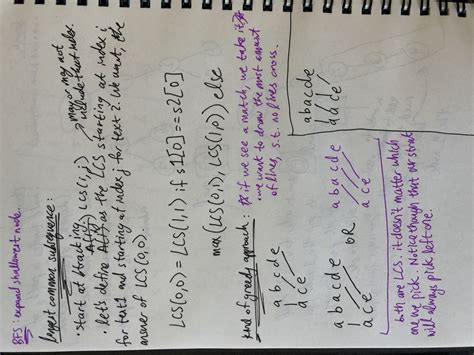 BFS: expand shallowest node.
longest common subsequence:
• start at tracking
may or may not
include that index.
• let's define LCS(i,j) as the LCS starting at index i
for text1 and starting at index j for text 2. we want, the
answer of LCS(0,0).
LCS(0,0) = LCS(1,1) if s1[0] == s2[0]
max(LCS(0,1), LCS(1,0)) else
kind of greedy approach: if we see a match, we take it
we want to draw the most amount
of lines, s.t. no lines cross.
a b c d e
a c e
a b a c d e
a c e
OR
a b a c d e
a c e
both are LCS. it doesn't matter which
one we pick. Notice though that our strat
will always pick left one.
a b a c d e
a c e